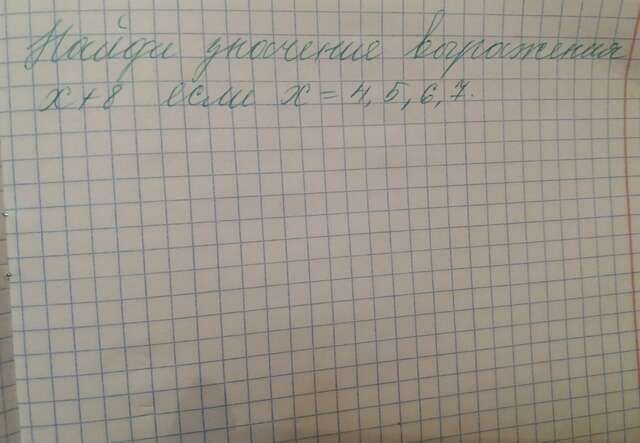 Найди значение выражения
x+8 если x = 4, 5, 6, 7.